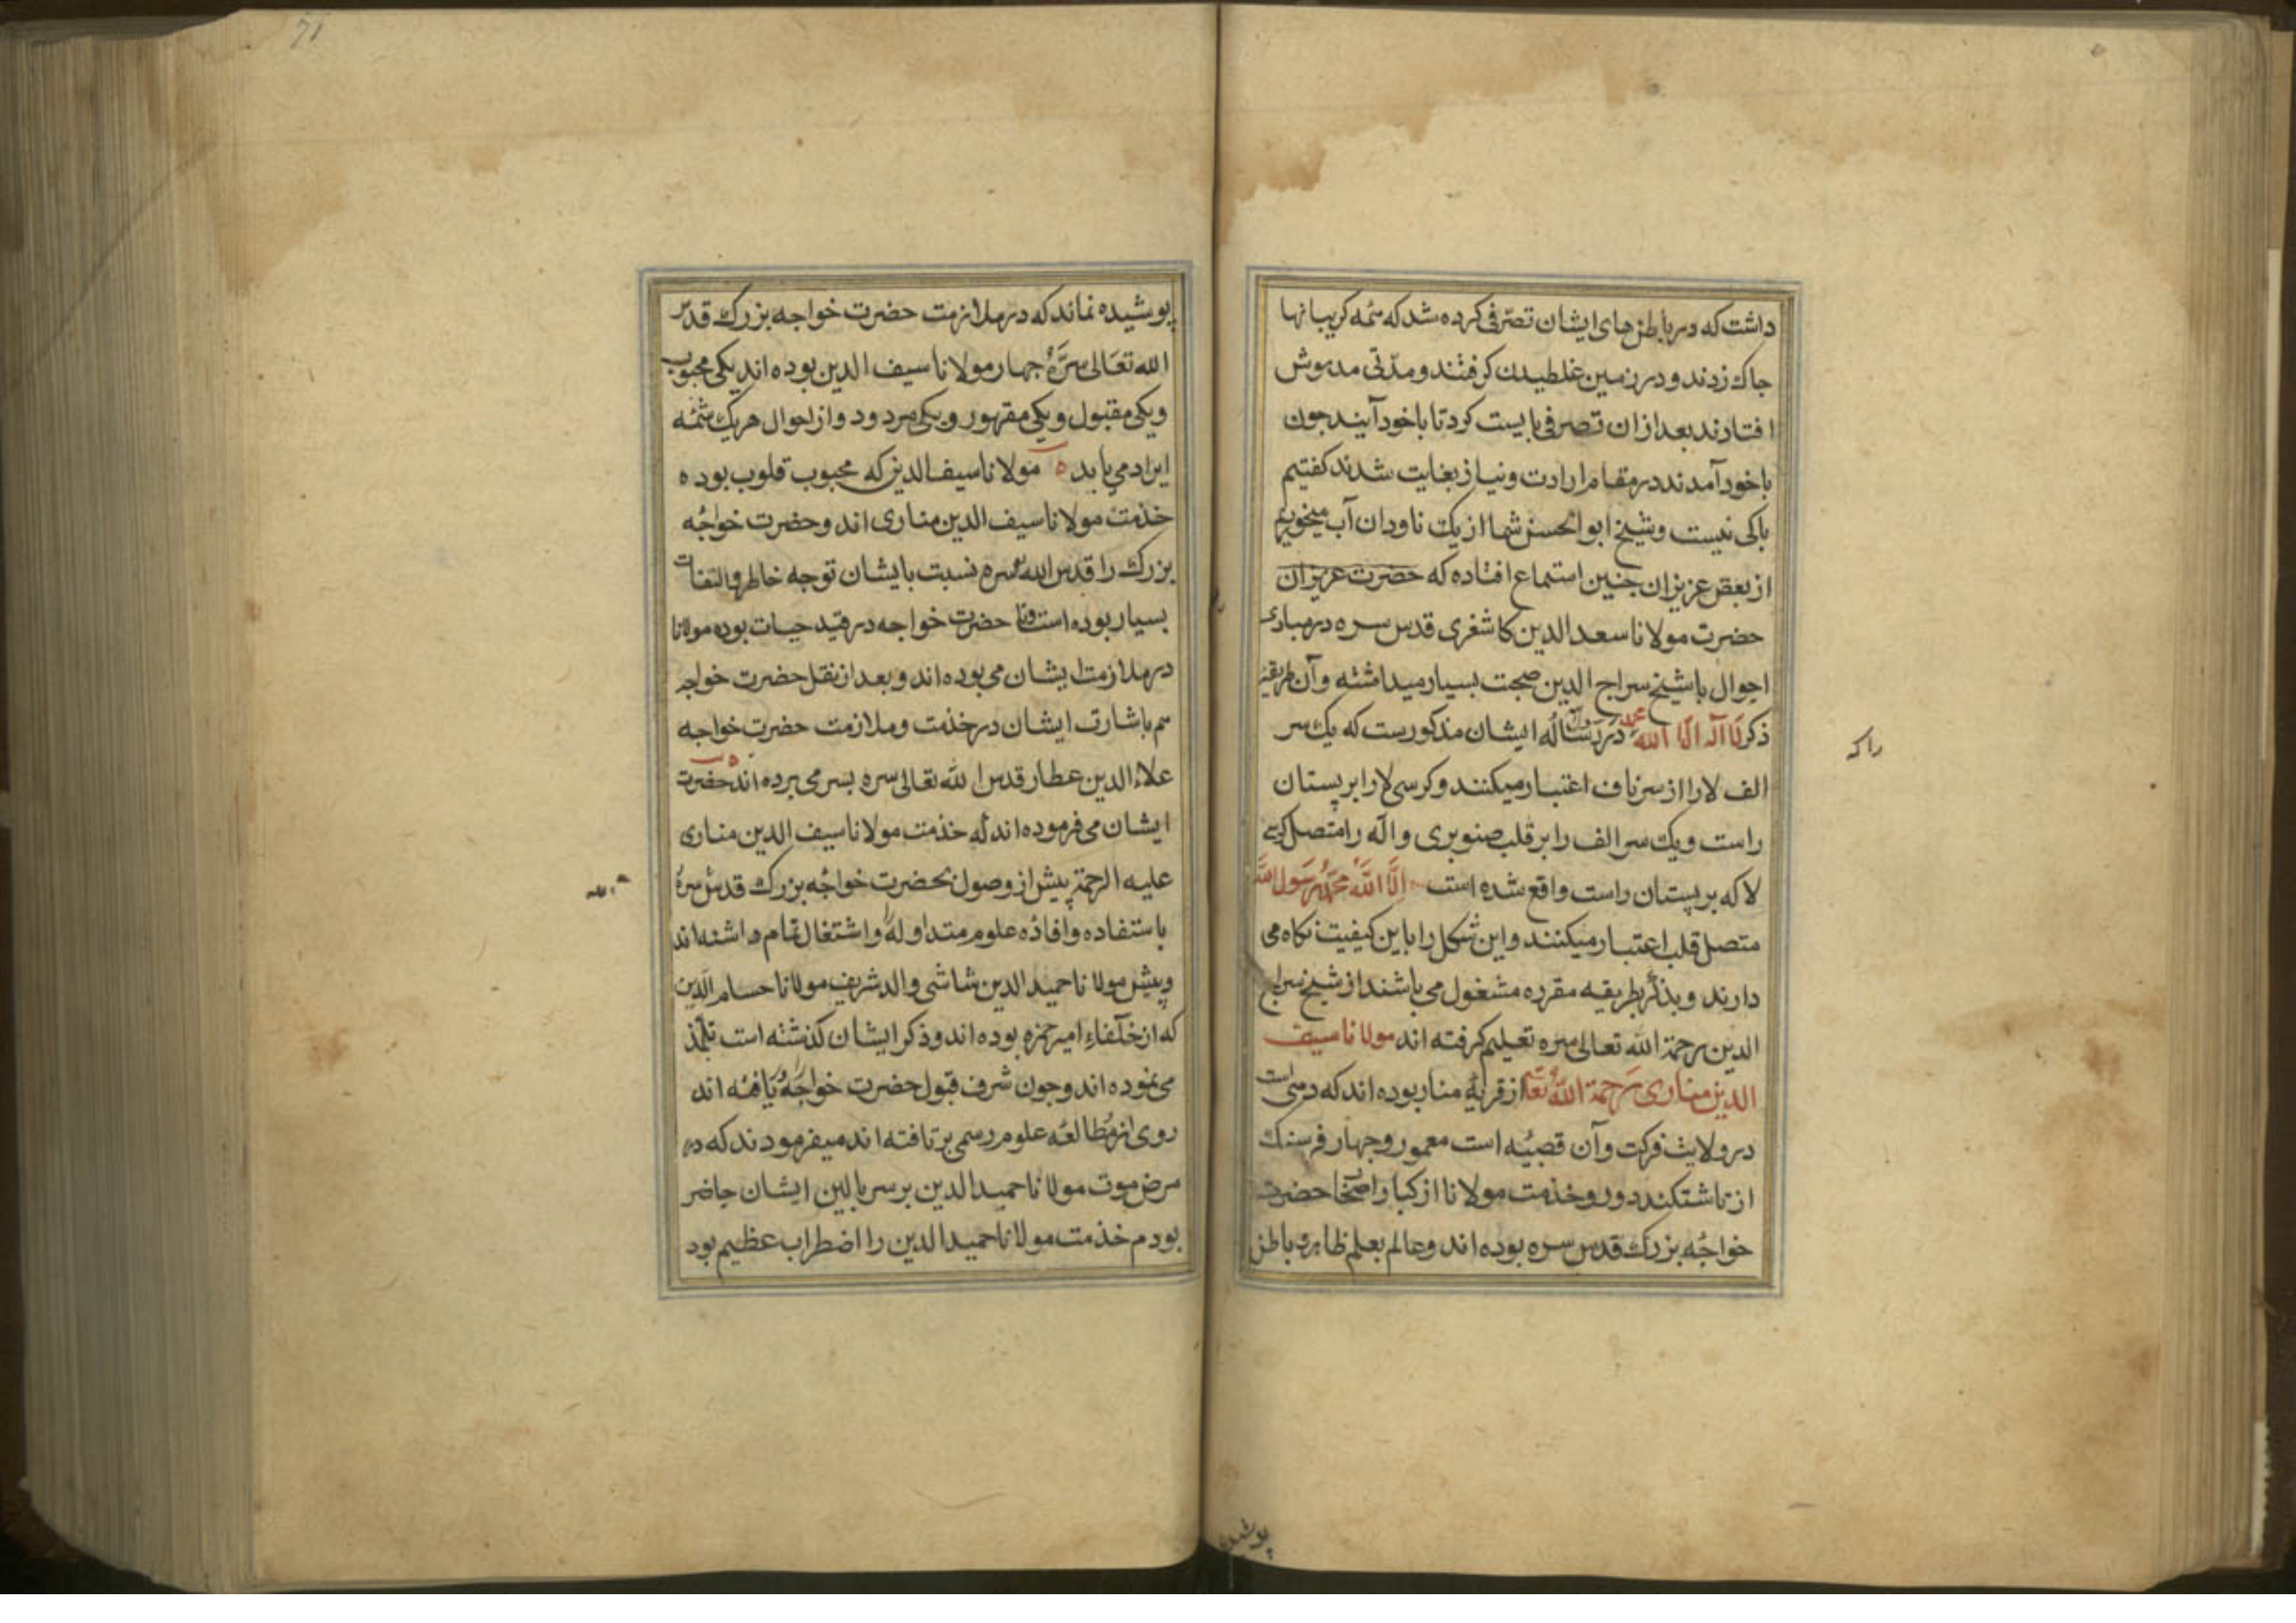 داشت که در باطن‌های ایشان تصرّفی کرده شد که همه کریبانها
جاک زدند و در زمین غلطیدن کرفتند و مدّتی مدهوش
افتادند بعد ازان تصرفی بایست کرد تا باخود آیند جون
باخود آمدند در مقام ارادت و نیاز بغایت شدند کفتیم
باکی نیست و شیخ ابوالحسن شما از یک ناودان آب میخوریم
از بعض عزیزان جنین استماع افتاده که حضرت عزیزان
حضرت مولانا سعد الدین کاشغری قدس سره در مبادی
احوال با شیخ سراج الدین صحبت بسیار میداشته و آن طریقهٔ
ذکر لَا اله الّا الله محمد در رسالهٔ ایشان مذکورست که یک سر
راکه
الف لا را از سر ناف اعتبار میکنند و کرسی لا را بر پستان
راست و یک سر الف را بر قلب صنوبری و اله را متصل کرسی
لا که بر پستان راست واقع شده است الَّا الله محمّد رسول الله
متصل قلب اعتبار میکنند و این شکل را باین کیفیت نکاه می
دارند و بذکر بطریقه مقرره مشغول می باشند از شیخ سراج
الدین رحمة الله تعالی سره تعلیم کرفته اند مولانا سیف
الدین مناری رحمة الله تعا از قریهٔ منار بوده اند که
در ولایت فرکت و آن قصبهٔ است معمور و جهار فرسنک
از تاشتکند دور و خذمت مولانا از کبار اصحاب حضرت
خواجهٔ بزرک قدس سره بوده اند و عالم بعلم ظاهر و باطن
پوشیده
71
پوشیده نماند که در ملازمت حضرت خواجه بزرک قدس
الله تعالی سرَّهُ جهار مولانا سیف الدین بوده اند یکی محبوب
و یکی مقبول و یکی مقهور و یکی مردود و از احوال هر یک شمّهٔ
ایراد می یابد مولانا سیف الدین که محبوب قلوب بوده
خذمت مولانا سیف الدین مناری اند و حضرت خواجهٔ
بزرک را قدس الله سره نسبت بایشان توجه خاطر و التفات
بسیار بوده است و تا حضرت خواجه در قید حیات بوده مولانا
در ملازمت ایشان می بوده اند و بعد از نقل حضرت خواجه
هم باشارت ایشان در خذمت و ملازمت حضرت خواجه
علاء الدین عطار قدس الله تعالی سره بسر می برده اند حضرت
ایشان می فرموده اند که خذمت مولانا سیف الدین مناری
علیه الرحمة پیش از وصول بحضرت خواجهٔ بزرک قدس سره
باستفاده و افادهٔ علوم متداوله و اشتغال تمام داشته اند
و پیش مولانا حمید الدین شاشی والد شریف مولانا حسام الدین
که از خلفاءِ امیر حمزه بوده اند و ذکر ایشان کذشته است تلمّذ
می نموده اند و جون شرف قبول حضرت خواجهٔ یافته اند
روی از مطالعهٔ علوم رسمی بر تافته اند میفرمودند که در
مرض موت مولانا حمید الدین بر سر بالین ایشان حاضر
بودم خذمت مولانا حمید الدین را اضطراب عظیم بود